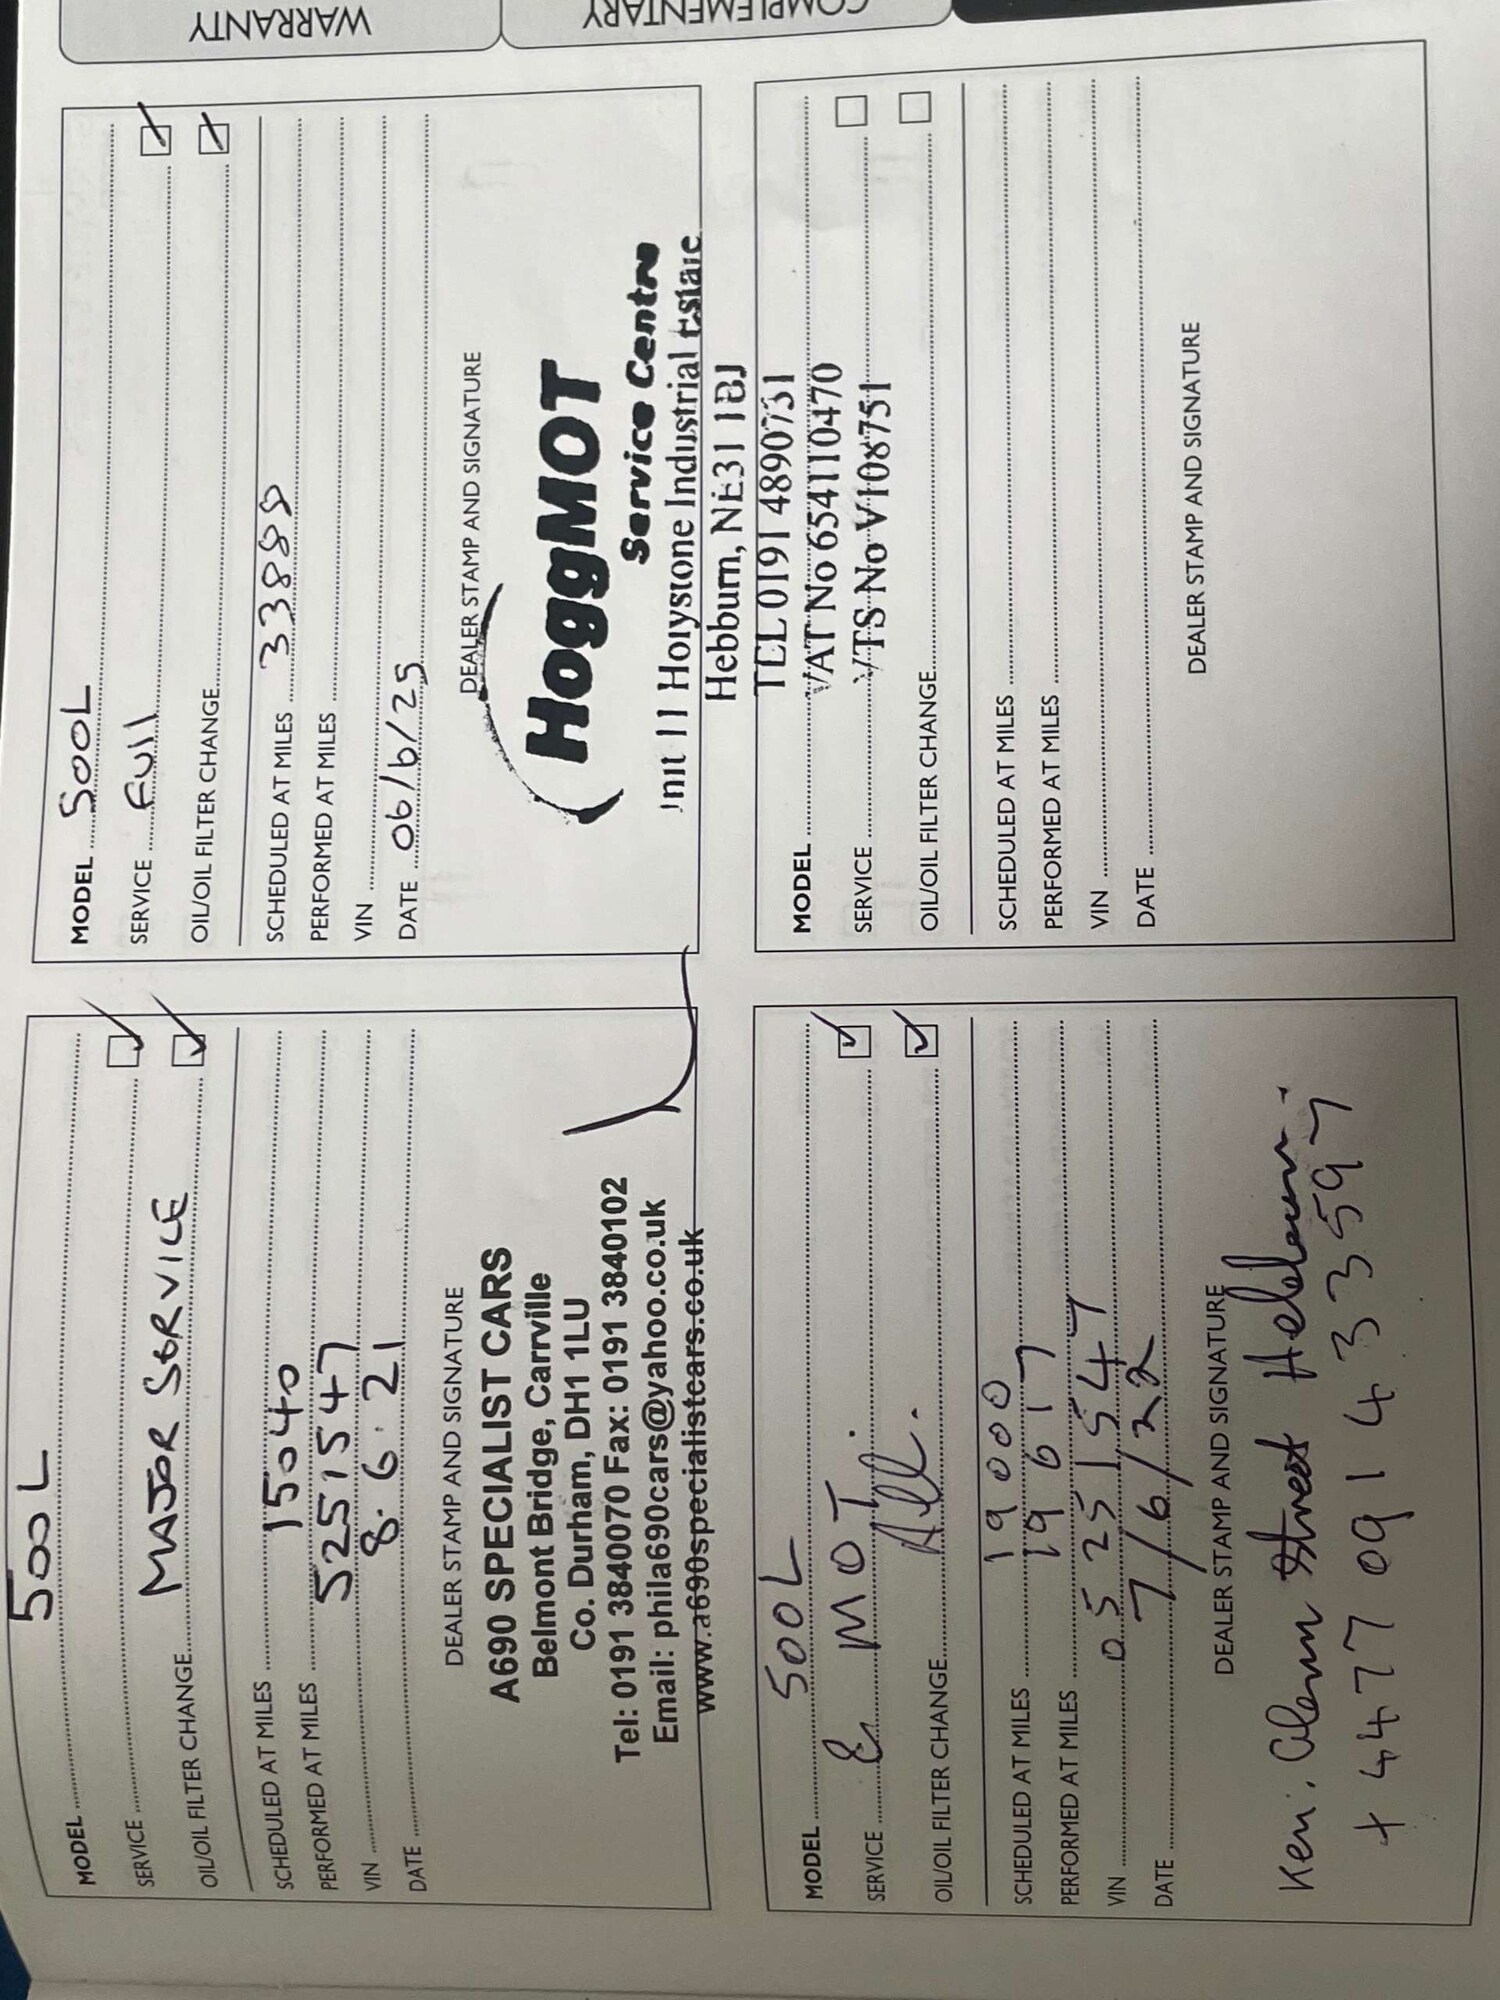 WARRANTY
COMPLEMENTARY
MODEL 500L
SERVICE MAJOR SERVICE
OIL/OIL FILTER CHANGE
SCHEDULED AT MILES 15040
PERFORMED AT MILES 
VIN 5251547
DATE 8.6.21
DEALER STAMP AND SIGNATURE
A690 SPECIALIST CARS
Belmont Bridge, Carrville
Co. Durham, DH1 1LU
Tel: 0191 3840070 Fax: 0191 3840102
Email: phila690cars@yahoo.co.uk
www.a690specialistcars.co.uk
MODEL 500L
SERVICE & MOT.
OIL/OIL FILTER CHANGE All.
SCHEDULED AT MILES 19000
PERFORMED AT MILES 19617
VIN 05251547
DATE 7/6/22
DEALER STAMP AND SIGNATURE
Street Hebburn
+447709143359
MODEL 500L
SERVICE Full
OIL/OIL FILTER CHANGE
SCHEDULED AT MILES 33888
PERFORMED AT MILES
VIN
DATE 06/6/25
DEALER STAMP AND SIGNATURE
HoggMOT
Service Centre
Unit 11 Holystone Industrial Estate
Hebburn, NE31 1BJ
TEL 0191 4890731
VAT No 654110470
VTS No V108751
MODEL
SERVICE
OIL/OIL FILTER CHANGE
SCHEDULED AT MILES
PERFORMED AT MILES
VIN
DATE
DEALER STAMP AND SIGNATURE